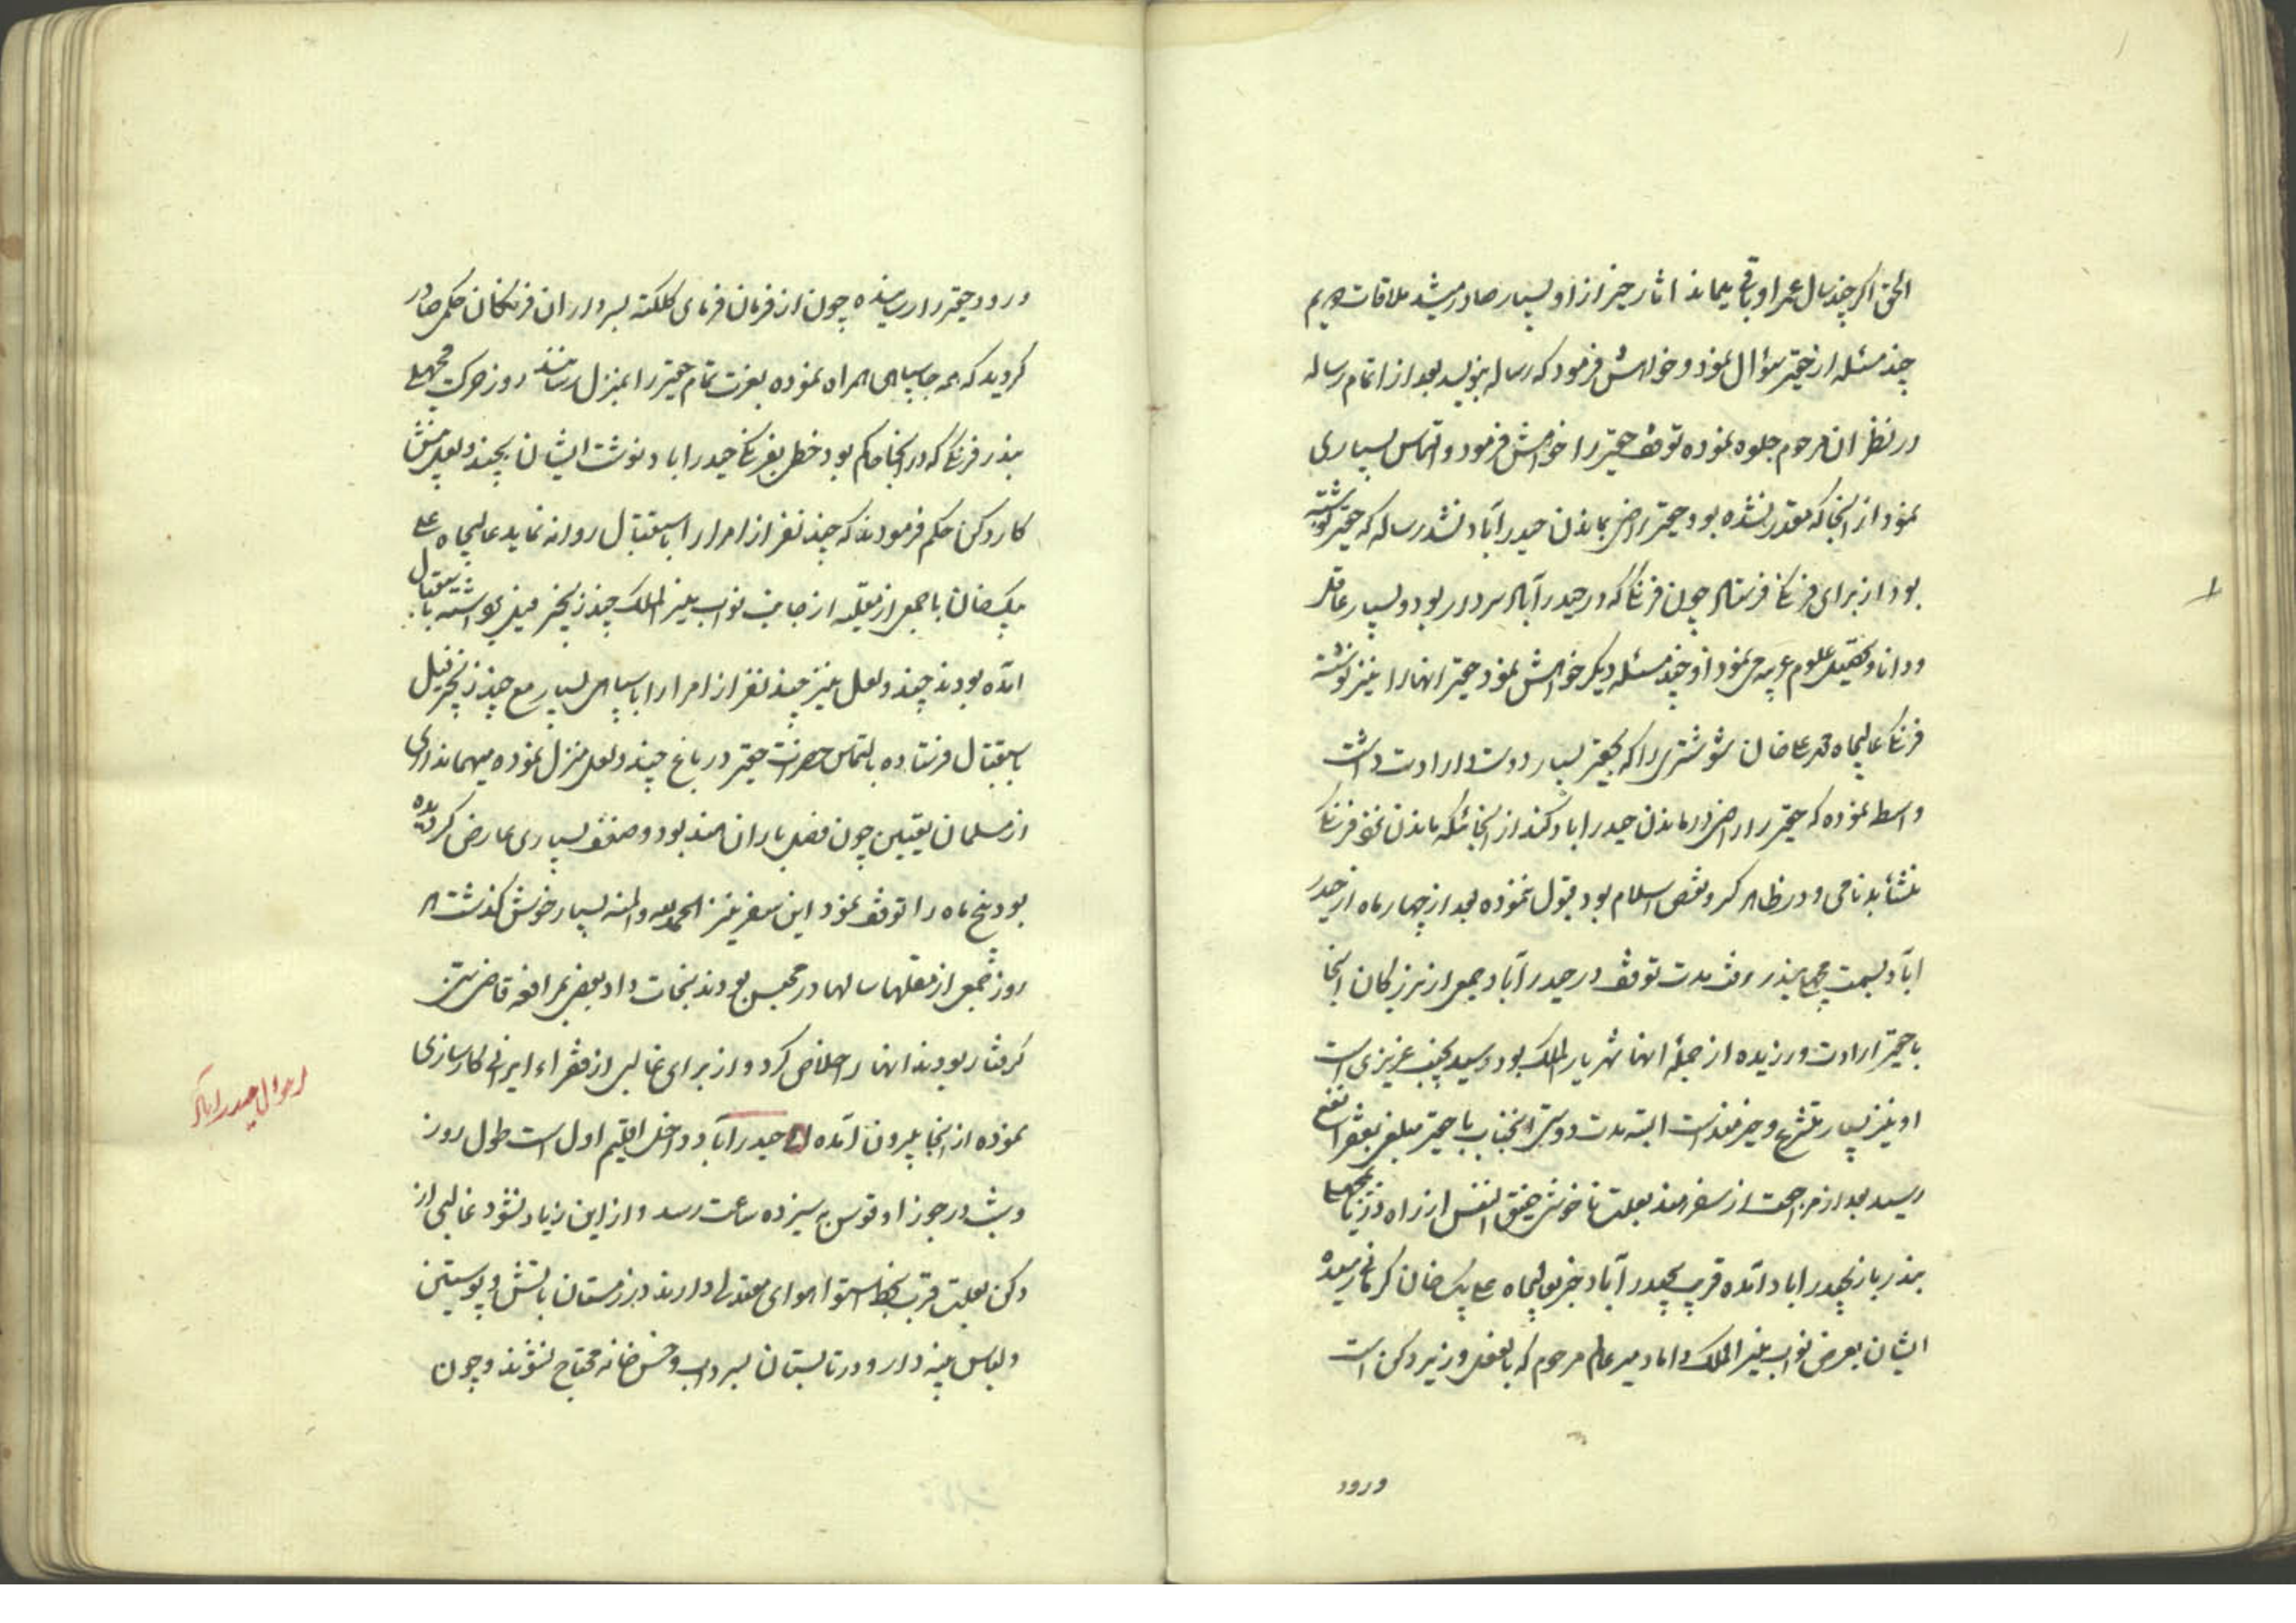 الحق اگر چند سال عمر او باقی میماند اثار خیر از او بسیار صادر میشد ملاقات
چند مسئله از حقیر سؤال نمود و خواهش فرمود که رساله بنویسد بعد از اتمام رساله
در نظر ان مرحوم جلوه نموده توقف حقیر را خواهش فرمود و التماس بسیاری
نمود از انجا که مقدر نشده بود حقیر راضی بماندن حیدرآباد نشد رساله که حقیر نوشته
بود از برای فرنگی فرستاد چون فرنگی که در حیدرآباد سردار بود و بسیار عاقل
و دانا و تحصیل علوم عربیه می نمود او چند مسئله دیگر خواهش نمود حقیر انها را نیز نوشته
فرنگی عالیجاه محمد علی خان شوشتری را که بحقیر بسیار دوست و ارادت داشت
واسطه نموده که حقیر را راضی در ماندن حیدراباد کند از انجائیکه ماندن نزد فرنگی
منشأ بدنامی و در ظاهر کسر و نقص اسلام بود قبول ننموده بعد از چهار ماه از حیدر
اباد بسمت مچهلی بندر رفت مدت توقف در حیدرآباد جمعی از بزرگان انجا
با حقیر ارادت ورزیده از جمله انها شهریار الملک بود و سید نجیب عزیزی است
او نیز بسیار متشرع و خیرمند است البته مدت دوستی انجناب با حقیر مبلغی بفقرا نفع
رسید بعد از مراجعت از سفر هند بعلت ناخوشی ضیق النفس از راه دریا بمچهلی
بندر باز بحیدراباد آمده قریب بحیدرآباد خبر بعالیجاه علی بیک خان کرمانی رسیده
ایشان بعرض نواب منیر الملک داماد میر عالم مرحوم که بالفعل وزیر دکن است
ورود
ورود حقیر را رسانیده چون از فرمان فرمای کلکته بسرداران فرنگان حکم صادر
گردید که همه جا سپاهی همراه نموده بعزت تمام حقیر را بمنزل رسانند روز حرکت مچهلی
بندر فرنگی که در انجا حاکم بود خطی بفرنگی حیدراباد نوشت ایشان بچندولعل
کار دکن حکم فرمودند که چند نفر از امرا را باستقبال روانه نماید عالیجاه علی
بیک خان با جمعی از مغلیه از جانب نواب منیر الملک چند زنجیر فیل برداشته باستقبال
آمده بودند چندولعل نیز چند نفر از امرا را با سپاهی بسیار مع چند زنجیر فیل
باستقبال فرستاده بالتماس حضرات حقیر در باغ چندولعل منزل نموده میهمانداری
از مسلمان یقین چون فصل باران هند بود و ضعف بسیاری عارض گردیده
بود پنج ماه را توقف نمود این سفر نیز الحمد لله والمنه بسیار خوش گذشت هر
روز جمعی از مغلها سالها در محبس بودند نجات داد بعضی بمرافعه قاضی
گرفتار بودند انها را خلاص کرد و از برای غالبی از فقراء ایرانی کارسازی
نموده از انجا بیرون آمده حیدرآباد داخل اقلیم اول است طول روز
و شب در جوزا و قوس به سیزده ساعت رسد و از این زیاد نشود غالبی از
دکن بعلت قرب بخط استوا هوای معتدلی دارند در زمستان باتش و پوستین
و لباس پنبه دار و در تابستان بسرداب و خس خانه محتاج نشوند و چون
احوال حیدراباد